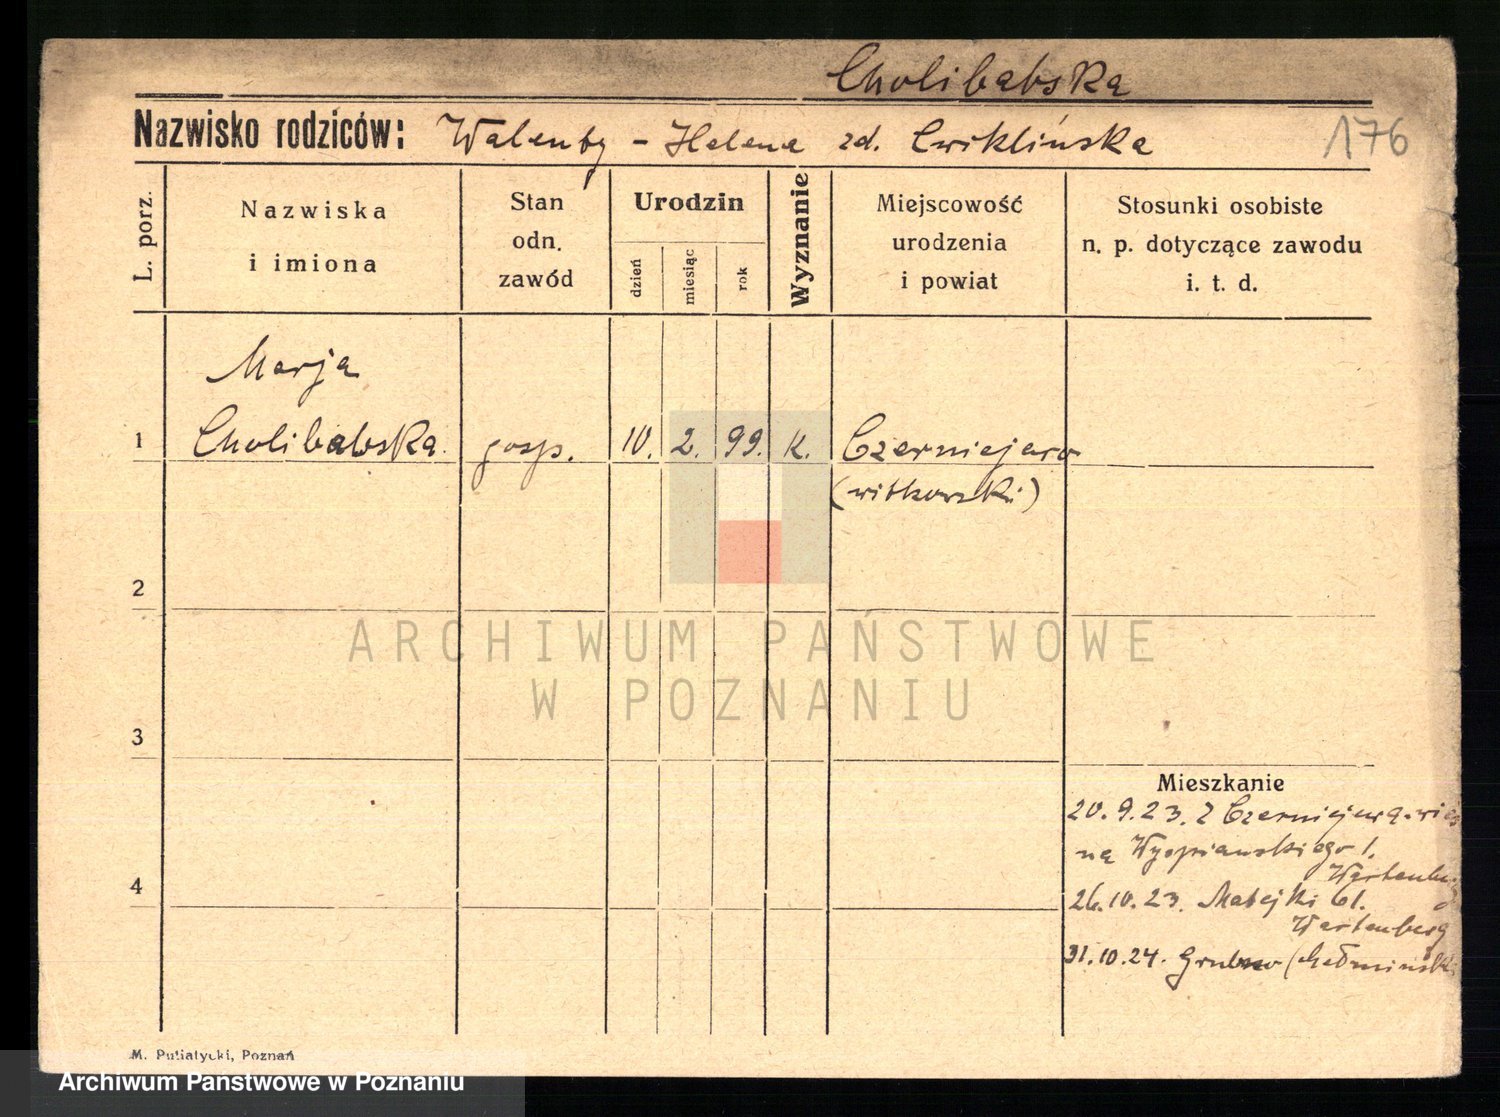 Cholibabska
Nazwisko rodziców: Walenty - Helena zd. Cwiklińska
176
L. porz.
Nazwiska
i imiona
Stan
odn.
zawód
Urodzin
dzień
miesiąc
rok
Wyznanie
Miejscowość
urodzenia
i powiat
Stosunki osobiste
n. p. dotyczące zawodu
i. t. d.
Marja
1 Cholibabska gosp. 10. 2. 99. k. Czerniejewo
(witkowski)
2
ARCHIWUM PAŃSTWOWE
W POZNANIU
3
Mieszkanie
20.9.23. Z Czerniejewa-wieś
na Wyspiańskiego 1.
Wartenberg
4
26.10.23. Matejki 61.
Wartenberg
31.10.24. Grubno (chełmiński
M. Putiatycki, Poznań
Archiwum Państwowe w Poznaniu